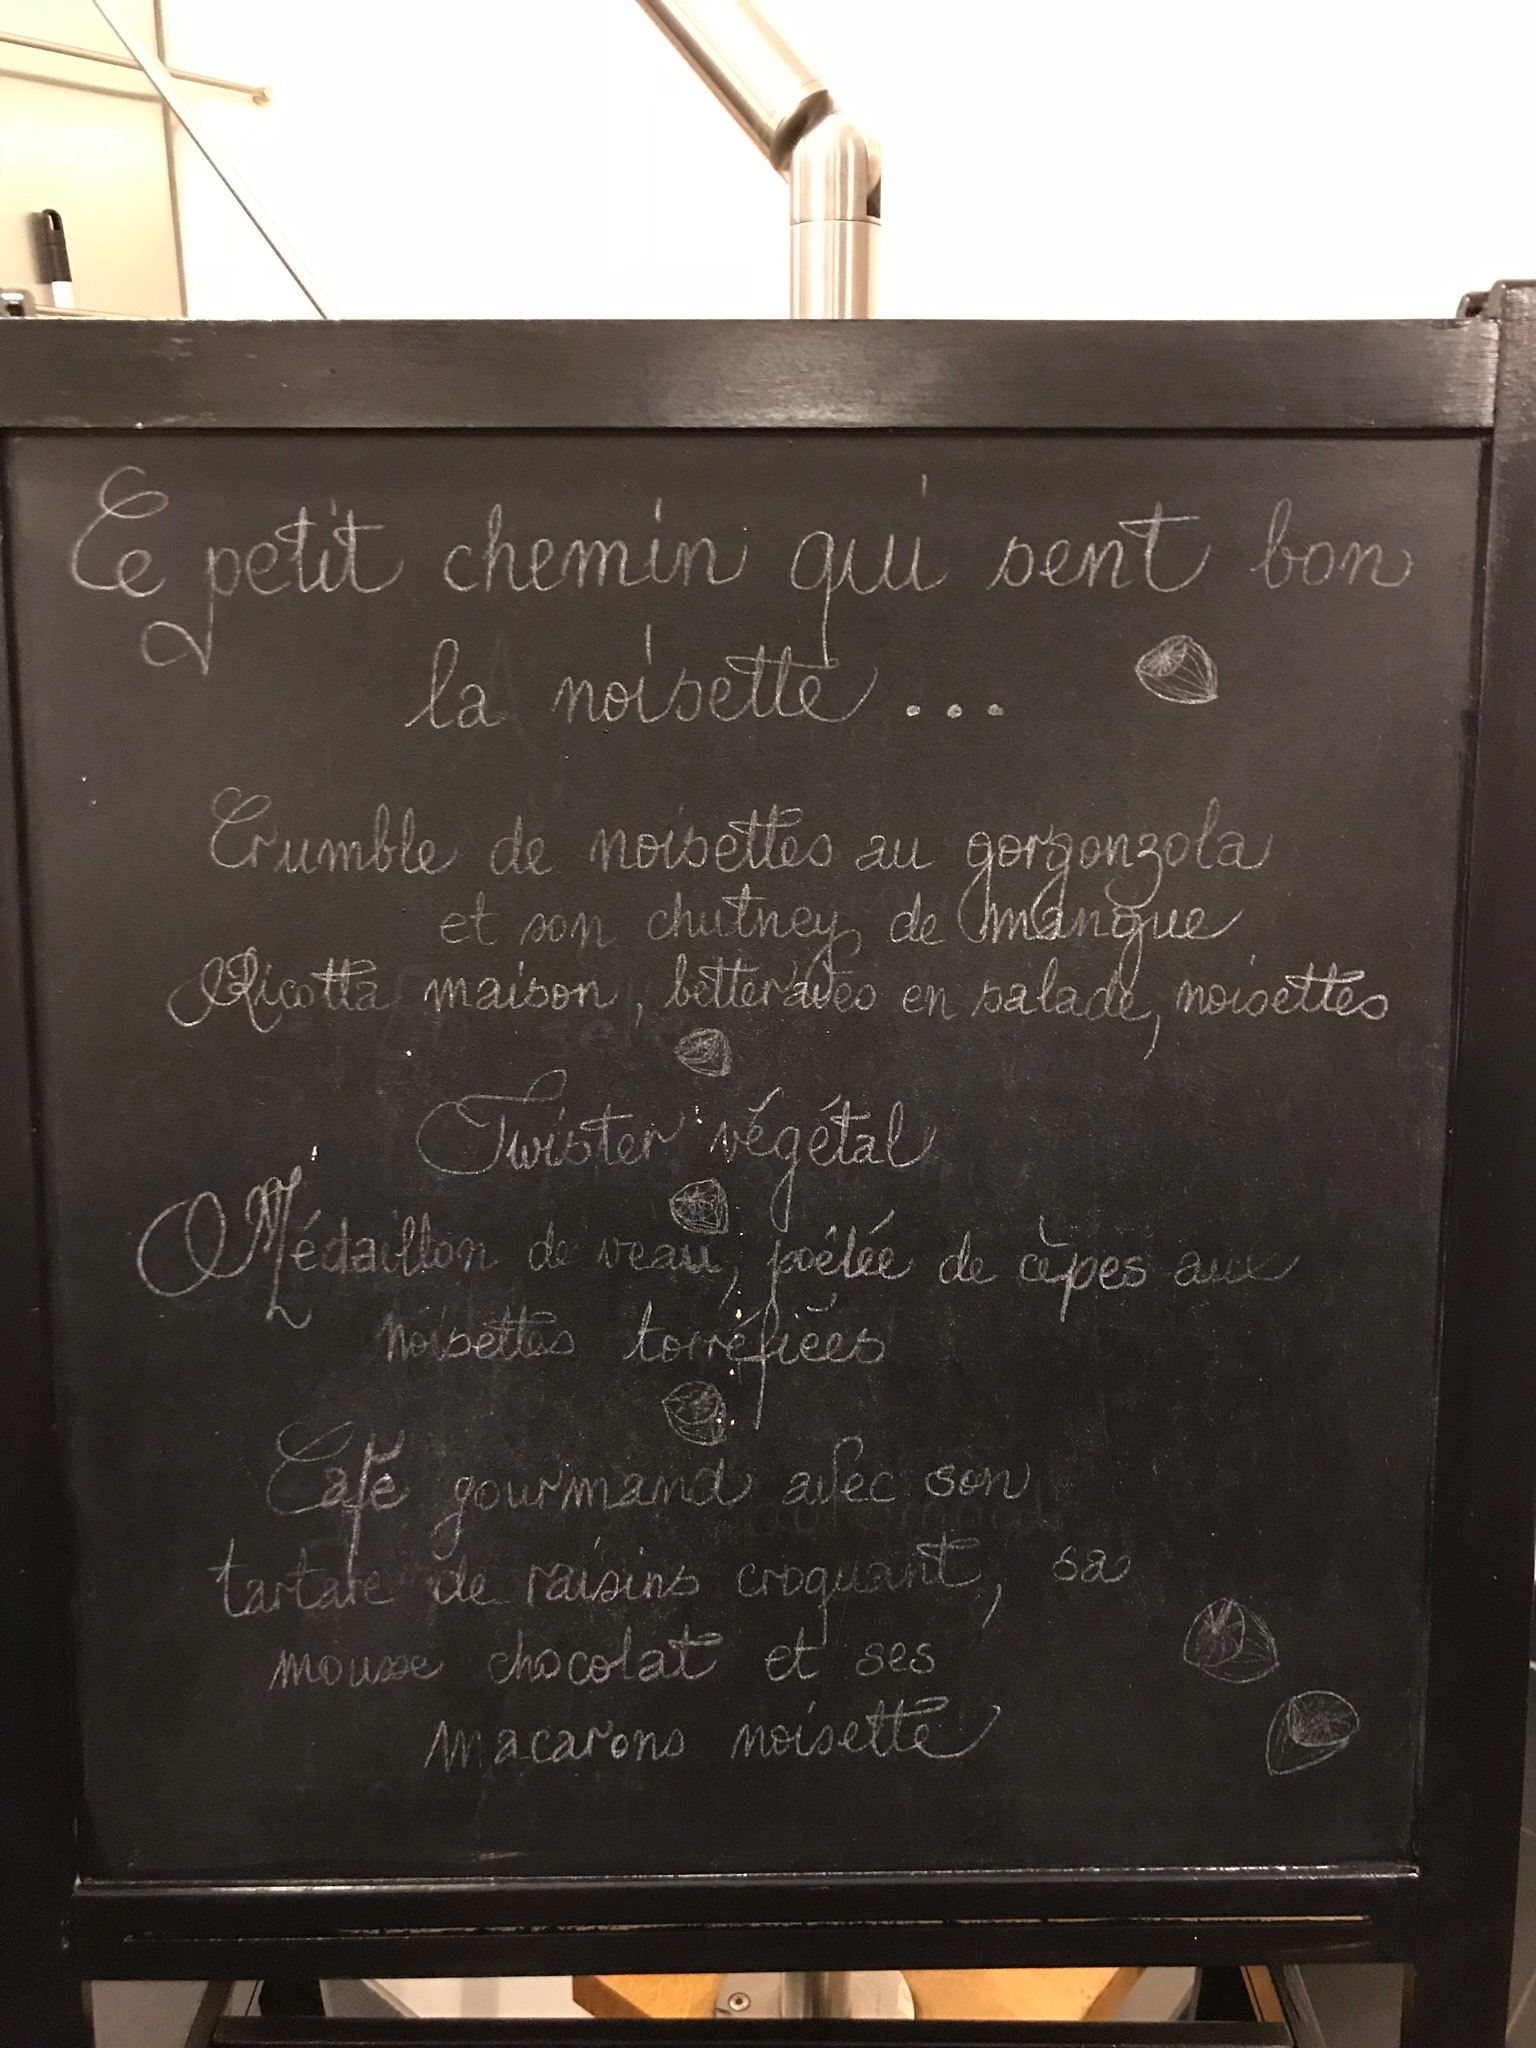 Ce petit chemin qui sent bon
la noisette...
Crumble de noisettes au gorgonzola
et son chutney de mangue
Ricotta maison, betteraves en salade, noisettes
Twister végétal
Médaillon de veau, poêlée de cèpes aux
noisettes torréfiées
Café gourmand avec son
tartare de raisins croquant, sa
mousse chocolat et ses
macarons noisette